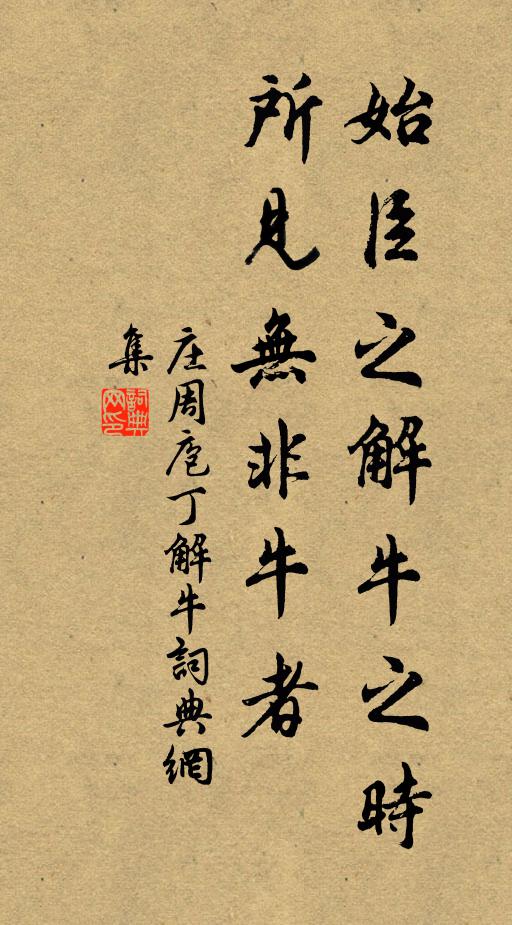 始臣之解牛之時
所見無非牛者
庄周庖丁解牛詞典網
集
詞典
网印